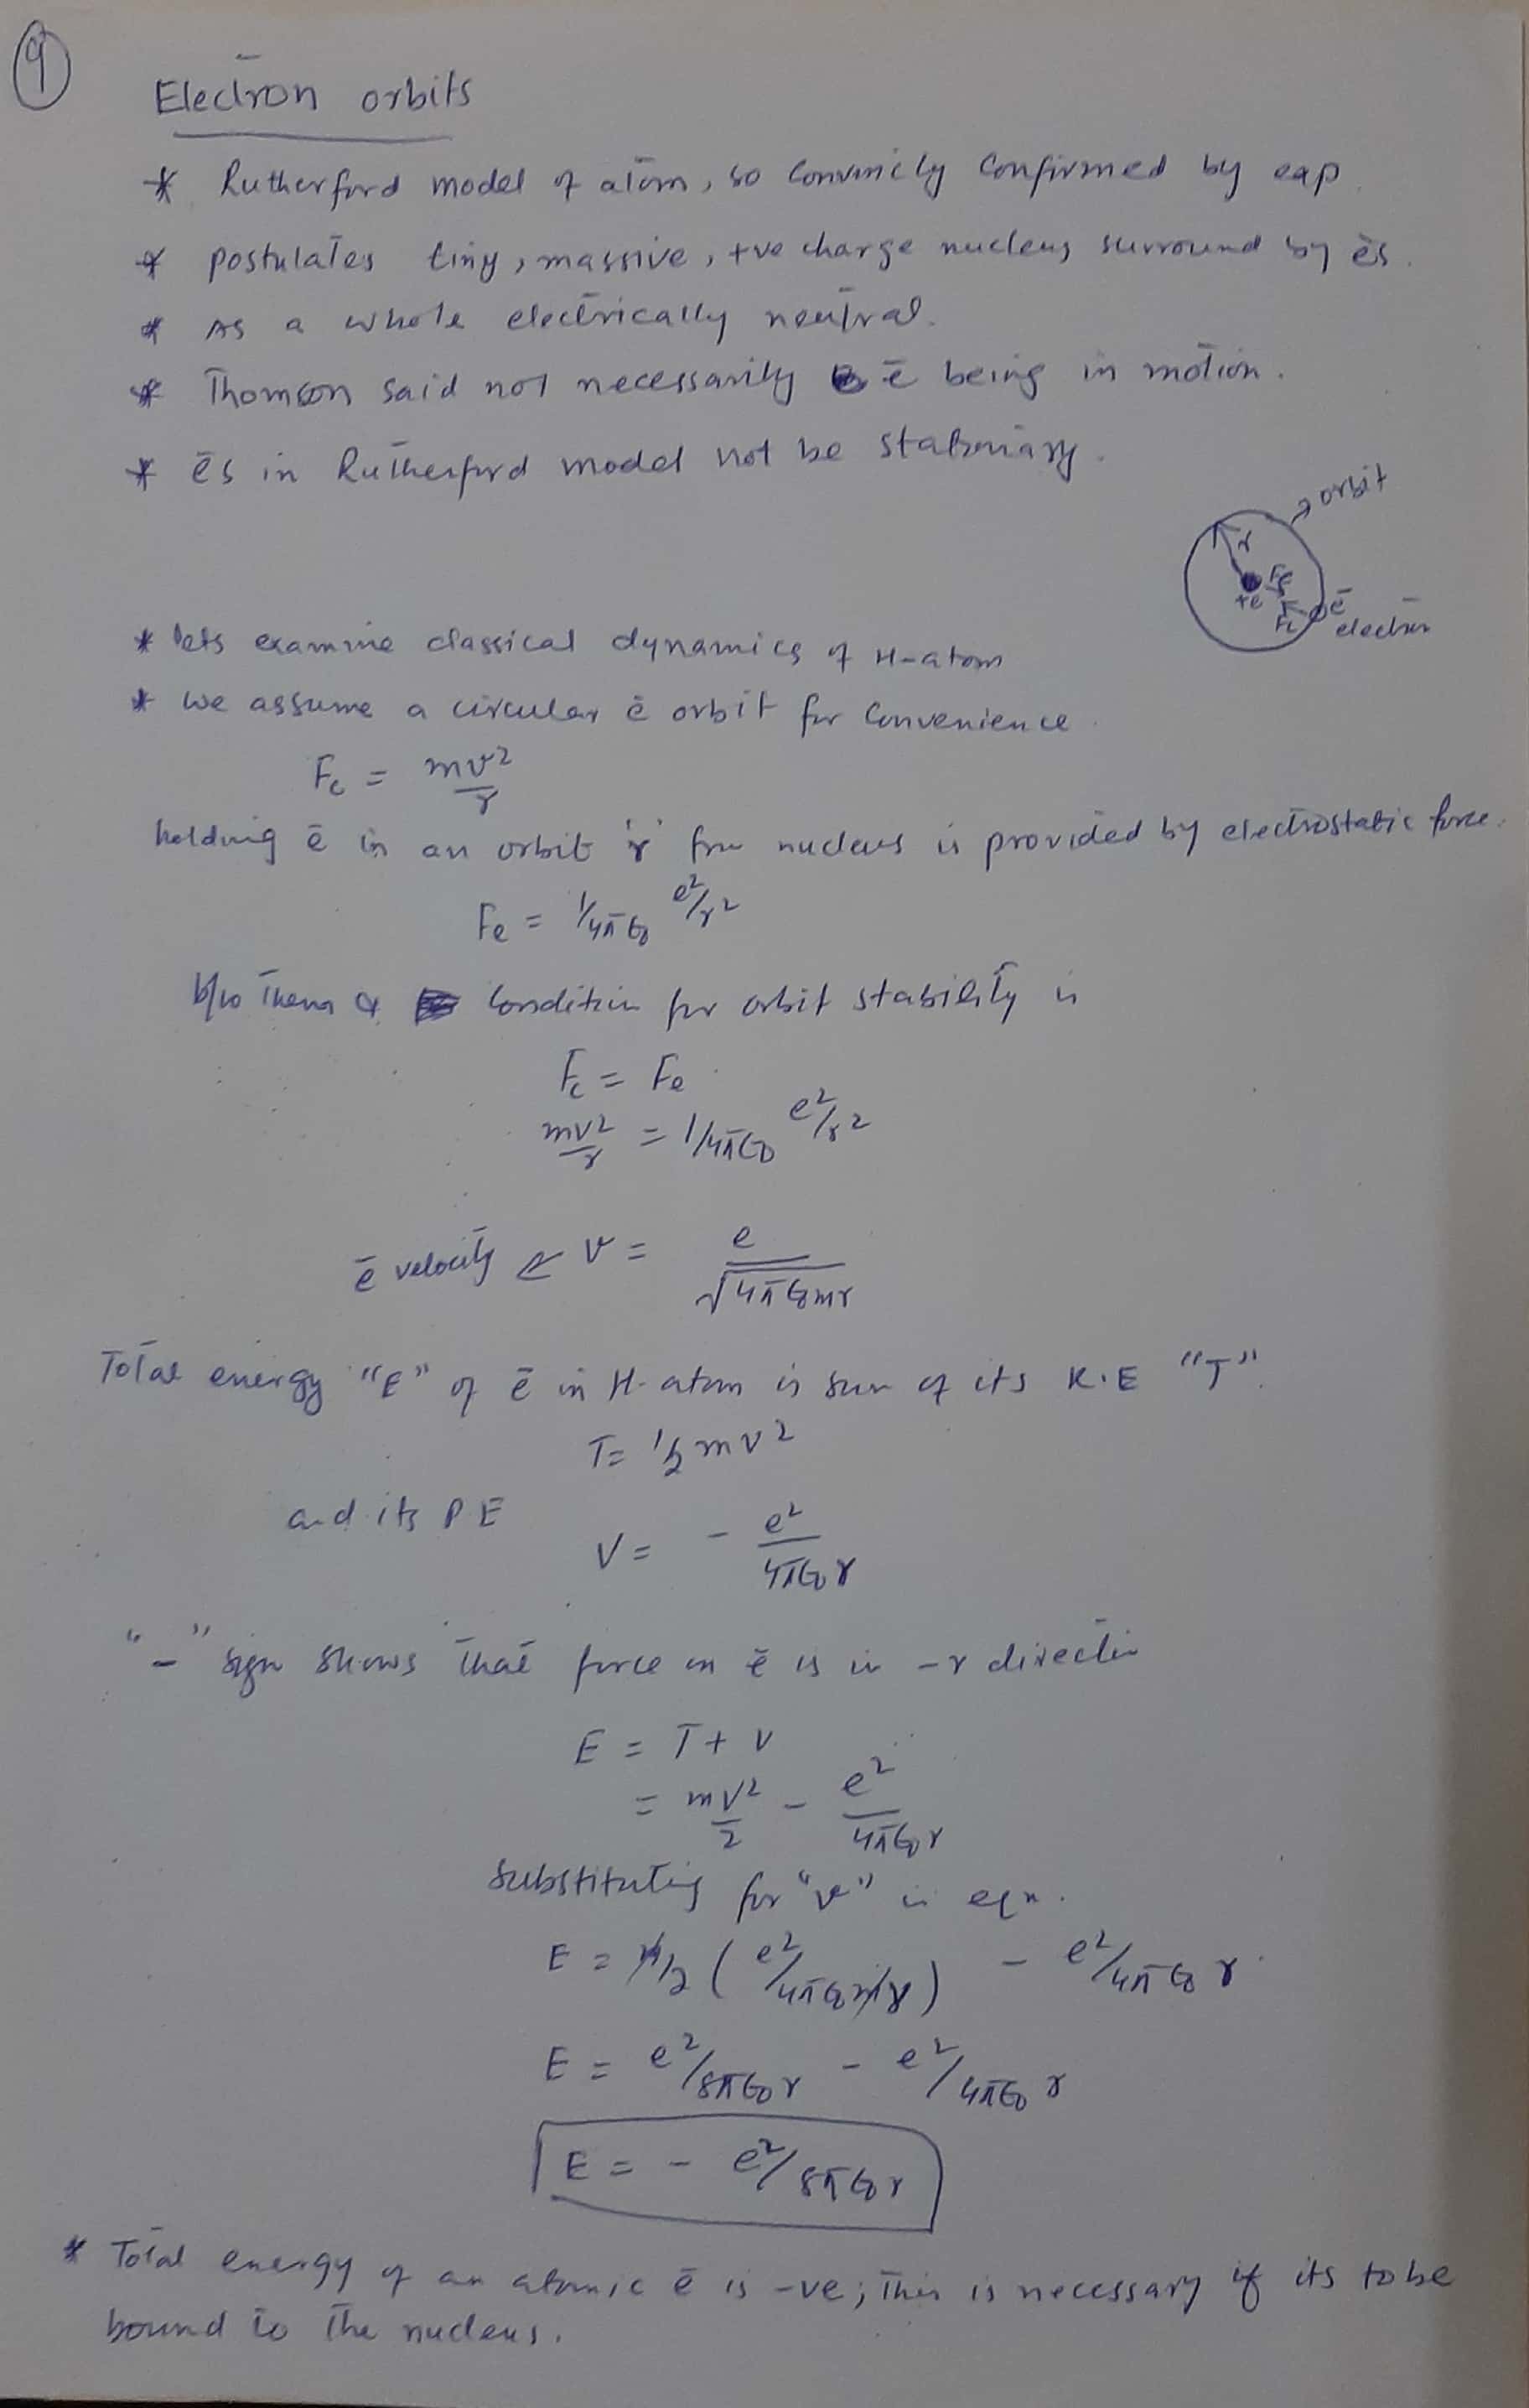 9
Electron orbits
* Rutherford model of atom, so convincly confirmed by exp.
* postulates tiny, massive, +ve charge nucleus surround by ēs.
* As a whole electrically neutral.
* Thomson said not necessarily ē being in motion.
* ēs in Rutherford model not be stationary.
→ orbit
r
+e
Fe
Fc
ē
electron
* lets examine classical dynamics of H-atom
* we assume a circular ē orbit for convenience.
Fc = mv²/r
holding ē in an orbit 'r' from nucleus is provided by electrostatic force.
Fe = 1/4πε₀ e²/r²
b/w them & condition for orbit stability is
Fc = Fe
mv²/r = 1/4πε₀ e²/r²
ē velocity ⇐ v = e/√4πε₀mr
Total energy "E" of ē in H-atom is sum of its K.E "T".
T = ½ mv²
and its PE
V = - e²/4πε₀r
"-" sign shows that force on ē is in -r direction
E = T + V
= mv²/2 - e²/4πε₀r
substituting for "v" in eqn.
E = m/2 (e²/4πε₀mr) - e²/4πε₀r
E = e²/8πε₀r - e²/4πε₀r
E = - e²/8πε₀r
* Total energy of an atomic ē is -ve; This is necessary if its to be
bound to the nucleus.